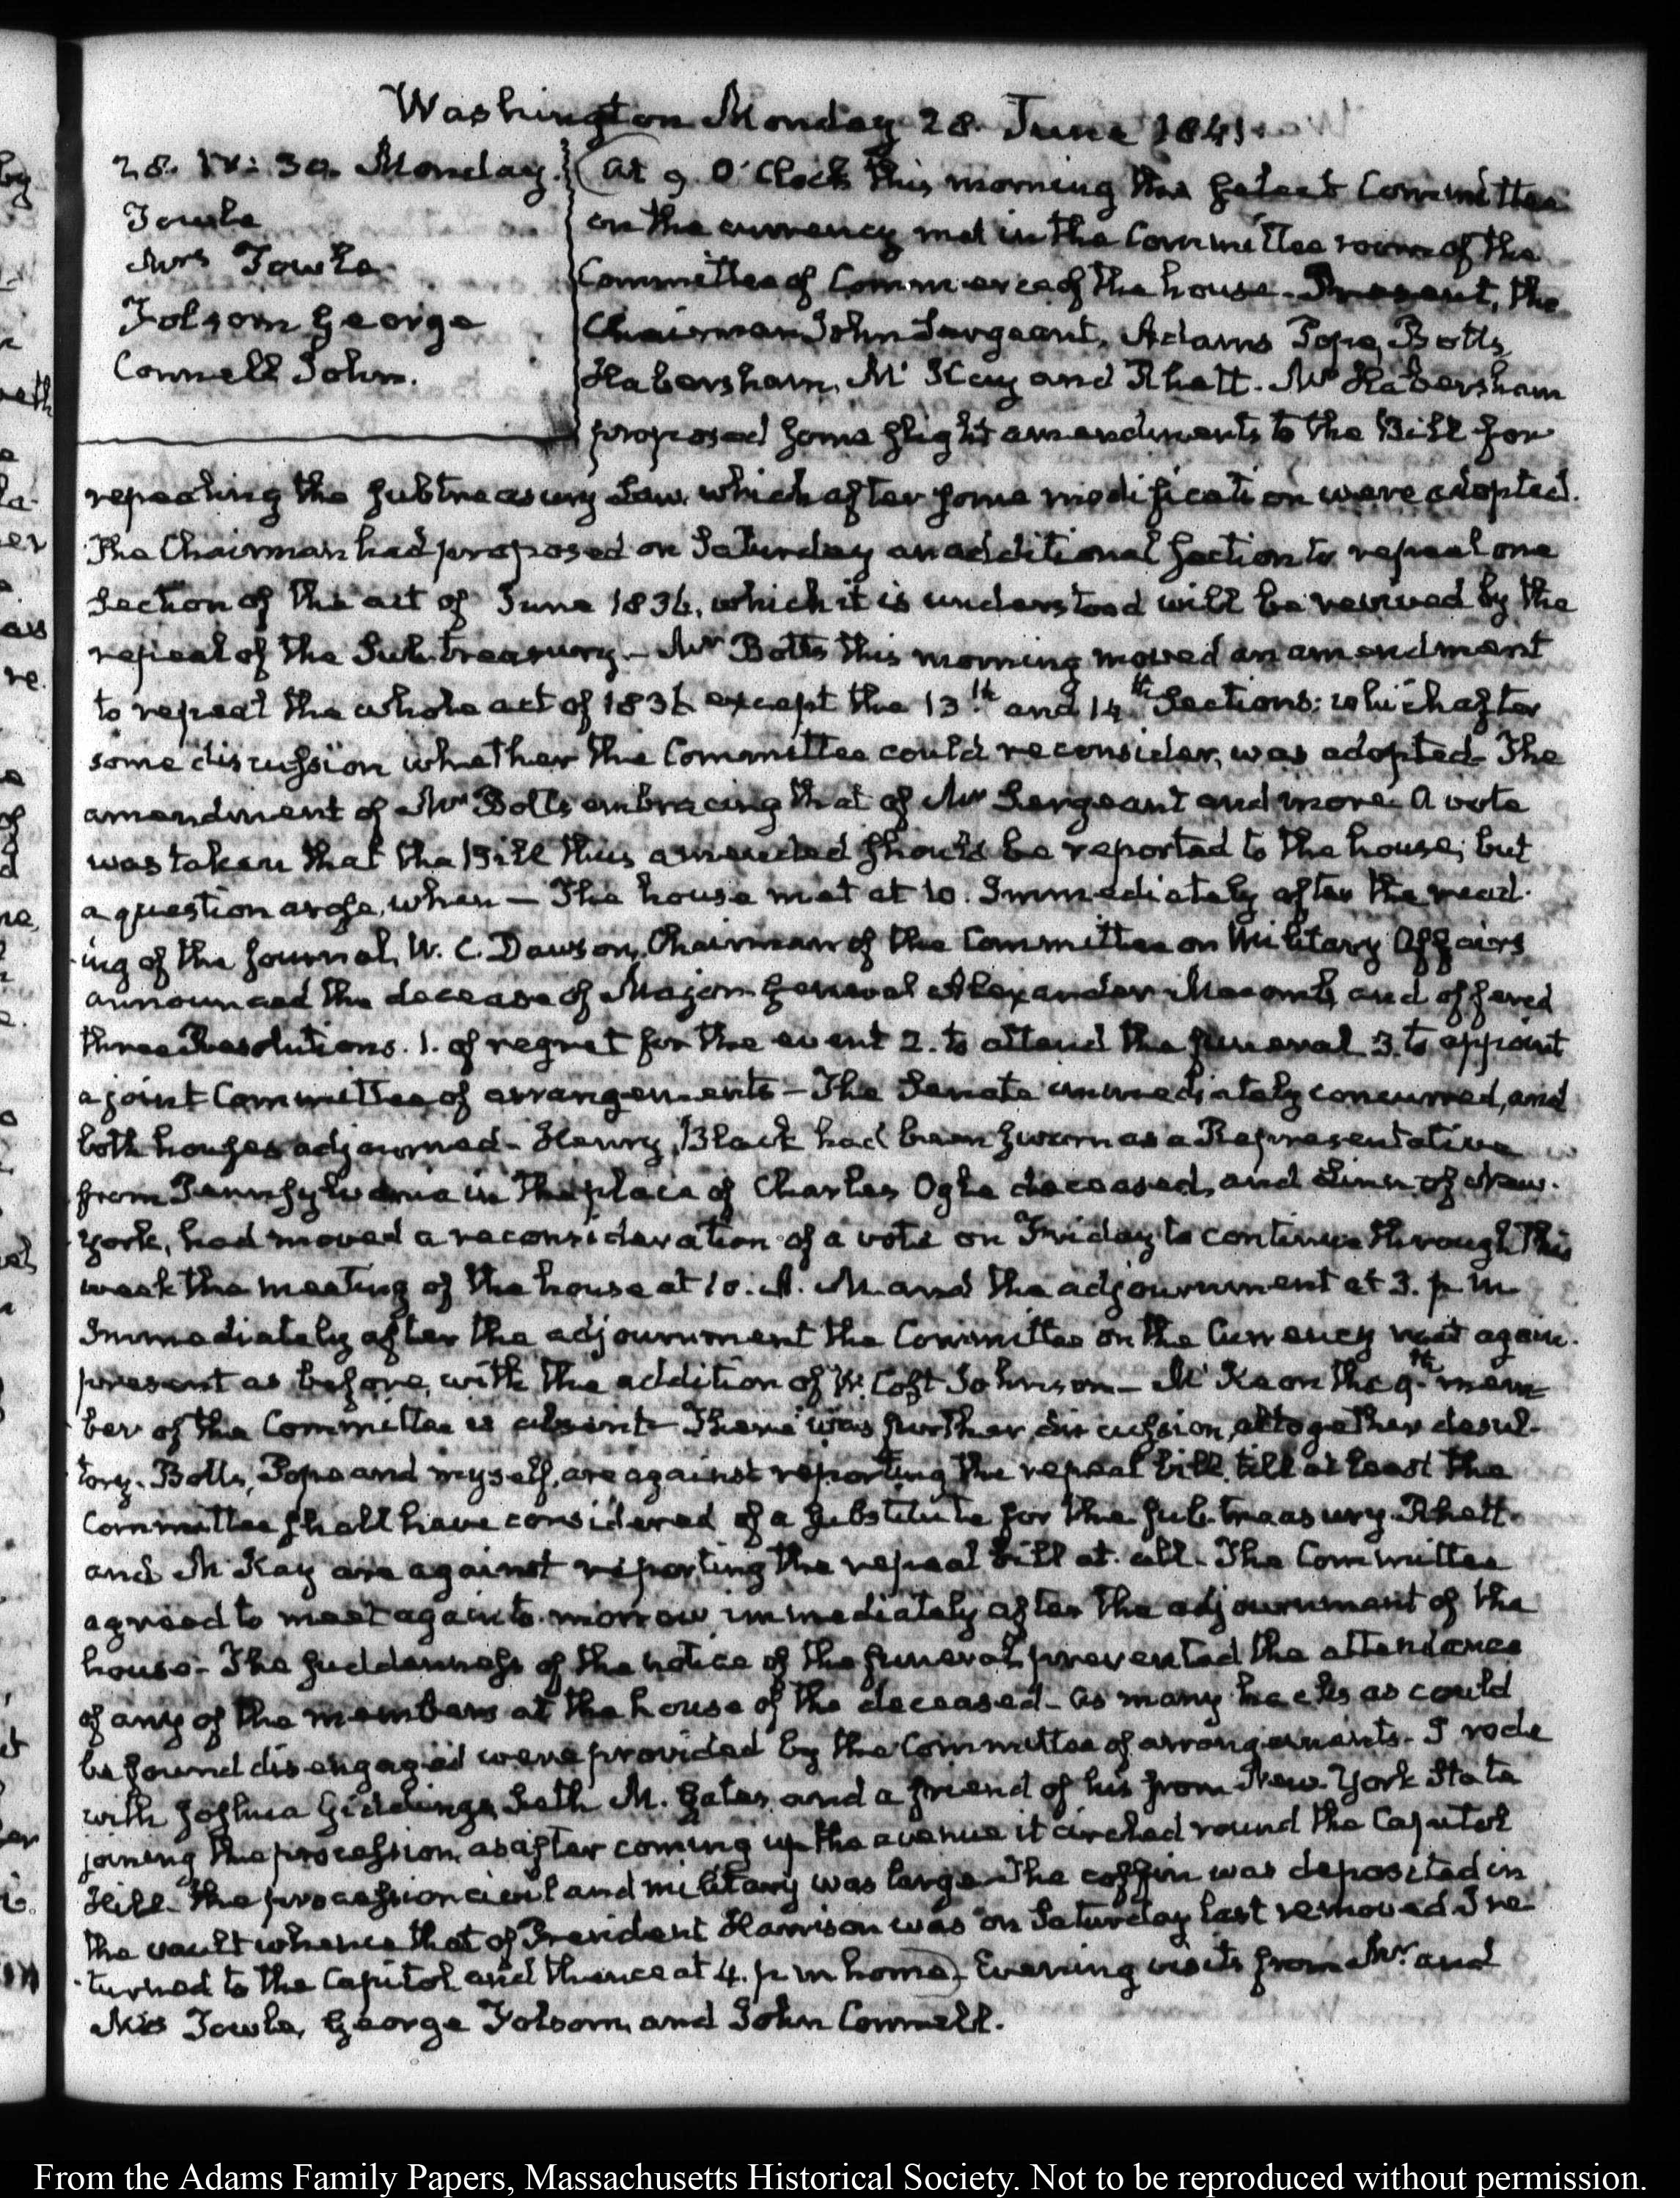 Washington Monday 28. June 1841.
28. IV: 30. Monday.
Towle
Mrs Towle
Folsom George
Connell John.
(At 9. O'Clock this morning the Select Committee
on the currency met in the Committee room of the
Committee of Commerce of the house. Present, the
Chairman John Sergeant, Adams Pope, Botts,
Habersham, McKay and Rhett. Mr Habersham
proposed some slight amendments to the Bill for
repealing the Subtreasury Law, which after some modification were adopted.
The Chairman had proposed on Saturday an additional Section to repeal one
Section of the act of June 1836, which it is understood will be revived by the
repeal of the Sub-treasury. Mr Botts this morning moved an amendment
to repeal the whole act of 1836 except the 13th and 14th Sections; which after
some discussion whether the Committee could reconsider, was adopted. The
amendment of Mr Botts embracing that of Mr Sergeant and more. A vote
was taken that the Bill thus amended should be reported to the house; but
a question arose, when — The house met at 10. Immediately after the read-
ing of the Journal, W. C. Dawson, Chairman of the Committee on Military Affairs
announced the decease of Major General Alexander Macomb, and offered
three Resolutions. 1. of regret for the event 2. to attend the funeral 3. to appoint
a joint Committee of arrangements — The Senate immediately concurred, and
both houses adjourned. Henry Black had been sworn as a Representative
from Pennsylvania in the place of Charles Ogle deceased, and Linn of New-
York, had moved a reconsideration of a vote on Friday to continue through this
week the meeting of the house at 10. A. M. and the adjournment at 3. p. m
Immediately after the adjournment the Committee on the Currency met again.
present as before, with the addition of W. Cost Johnson — McKeon the 9th mem-
ber of the Committee is absent. There was further discussion, altogether desul-
tory. Botts, Pope and myself, are against reporting the repeal bill, till at least the
Committee shall have considered of a substitute for the Sub-treasury. Rhett
and McKay are against reporting the repeal bill at all. The Committee
agreed to meet again to-morrow immediately after the adjournment of the
house. The suddenness of the notice of the funeral, prevented the attendance
of any of the members at the house of the deceased. As many hacks as could
be found disengaged were provided by the Committee of arrangements. I rode
with Joshua Giddings, Seth M. Gates, and a friend of his from New-York State
joining the procession, as after coming up the avenue it circled round the Capitol
Hill. The procession civil and military was large. The coffin was deposited in
the vault whence that of President Harrison was on Saturday last removed. I re-
turned to the Capitol and thence at 4. p m home.) Evening visits from Mr. and
Mrs Towle, George Folsom, and John Connell.
From the Adams Family Papers, Massachusetts Historical Society. Not to be reproduced without permission.